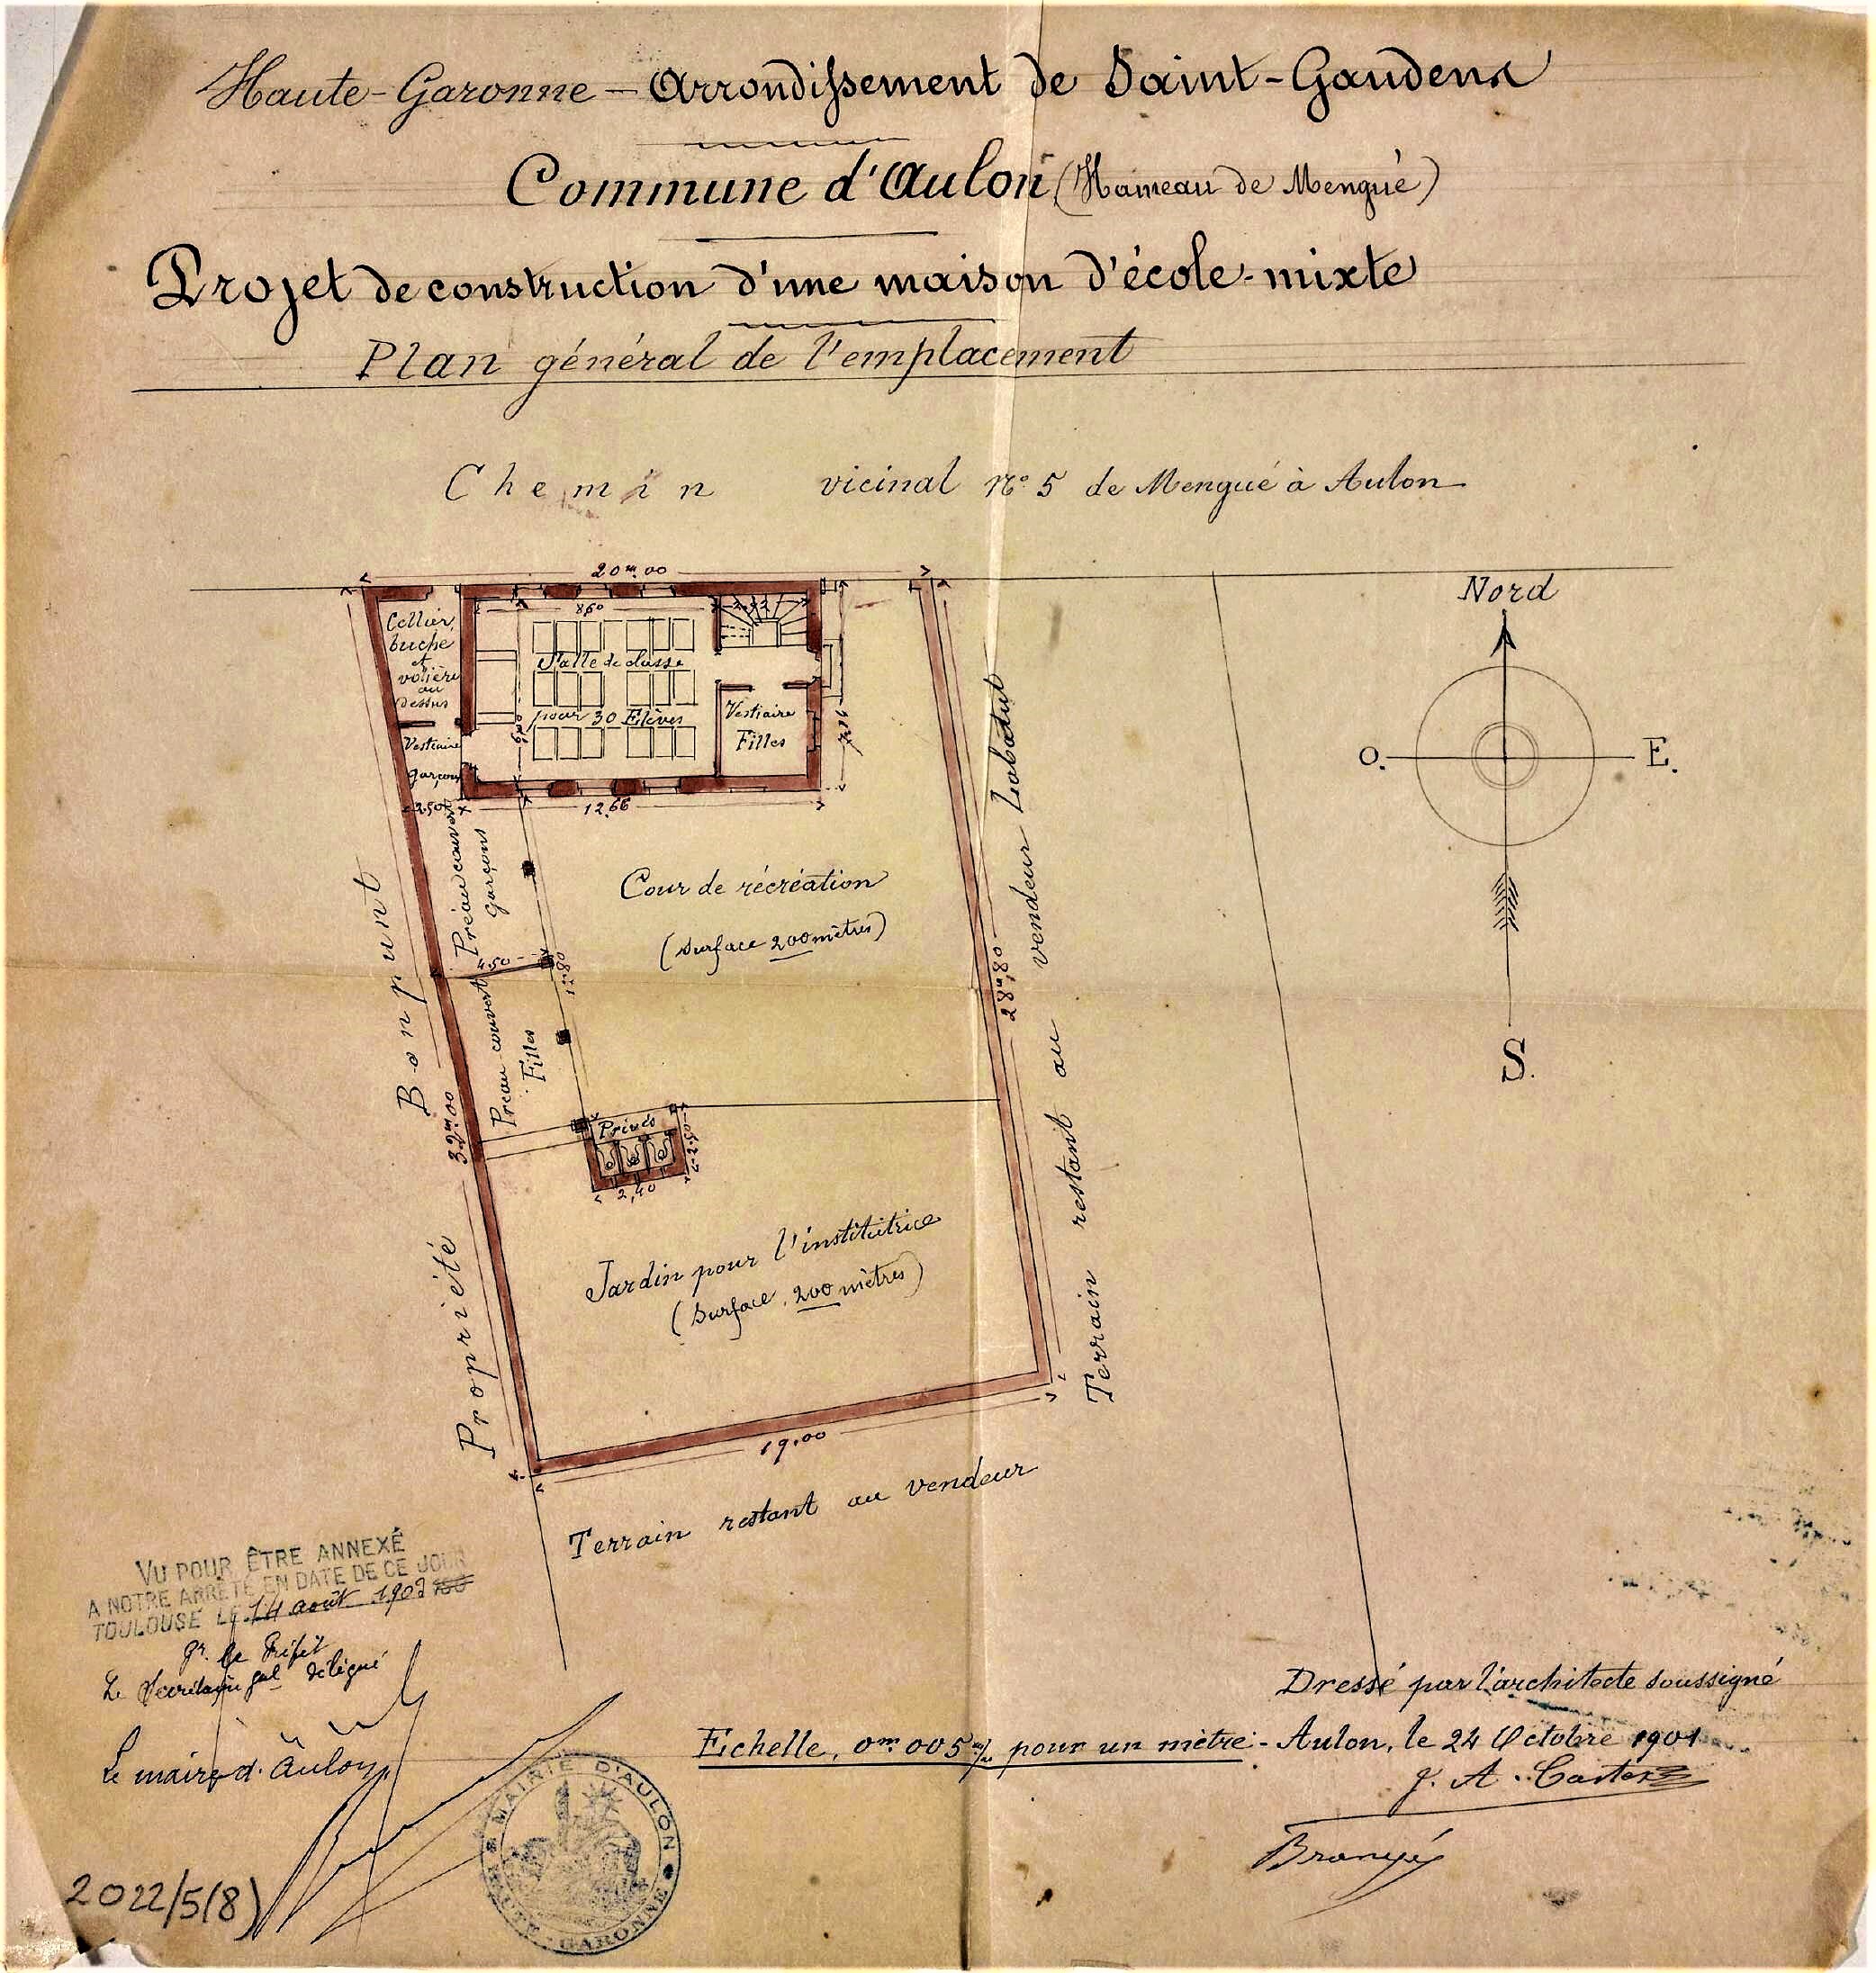 Haute-Garonne - Arrondissement de Saint-Gaudens
Commune d'Aulon (Hameau de Mengué)
Projet de construction d'une maison d'école-mixte
Plan général de l'emplacement
Chemin vicinal No 5 de Mengué à Aulon
20m.00
Nord
O.
E.
S.
Cellier,
buche
et
volière
au
dessus
8,60
Salle de classe
pour 30 Elèves
Vestiaire
Filles
Vestiaire
garçons
2.50
12.66
Préau couvert
garçons
Cour de récréation
(Surface 200 mètres)
4.50
12.80
Préau couvert
Filles
Privés
2.50
2,40
Jardin pour l'institutrice
(Surface, 200 mètres)
19.00
28m,80
32m.00
Propriété Bonpunt
Terrain restant au vendeur Labatut
Terrain restant au vendeur
VU POUR ÊTRE ANNEXÉ
A NOTRE ARRÊTÉ EN DATE DE CE JOUR
TOULOUSE LE 14 août 1902
Pr. le Préfet
Le Secrétaire gal délégué
Le maire d'Aulon,
MAIRIE D'AULON
HAUTE-GARONNE
Echelle, 0m.005m/m pour un mètre - Aulon, le 24 Octobre 1901
Dressé par l'architecte soussigné
J. A. Castex
2022/5(8)